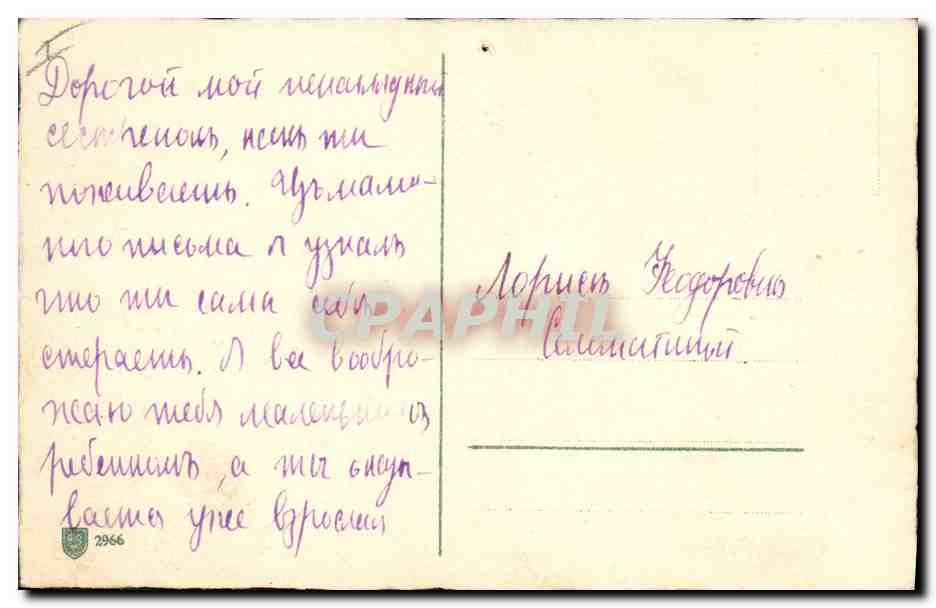 Дорогой мой ненаглядный
сестренокъ, какъ ты
поживаешь. Изъ мами-
ного письма я узналъ
что ты сама себя
стераешь. Я все вообро-
жаю тебя маленькимъ
ребенкомъ, а ты окозы-
ваешся уже взрослая
2966
Ларисѣ Феодоровнѣ
CPAPHIL